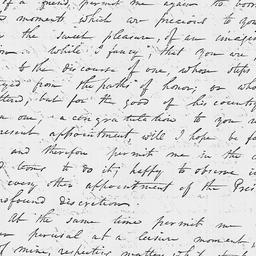 of a friend, permit me again to borro
moments which are precious to you
the sweet pleasure, of an imagin
while I fancy, that you are
to the discourse of one, whose steps
from the paths of honor, or who
tend, but for the good of his country
one, a congratulation to you
resent appointment, will I hope be fo
and therefore permit me in the
terms to do it; happy to observe i
every other appointment of the Presi
rofound Discretion.
At the same time permit me
perusal at a leisure moment,
of mine, respecting matters which